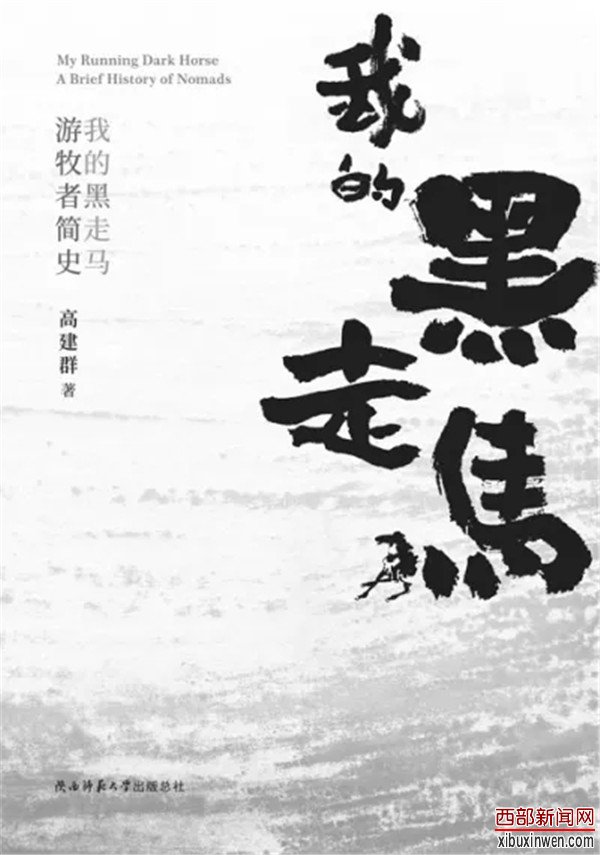 My Running Dark Horse
A Brief History of Nomads
我的黑走马
游牧者简史
高建群 著
我的
黑
走
馬
陕西师范大学出版总社
西部新闻网
xibuxinwen.com